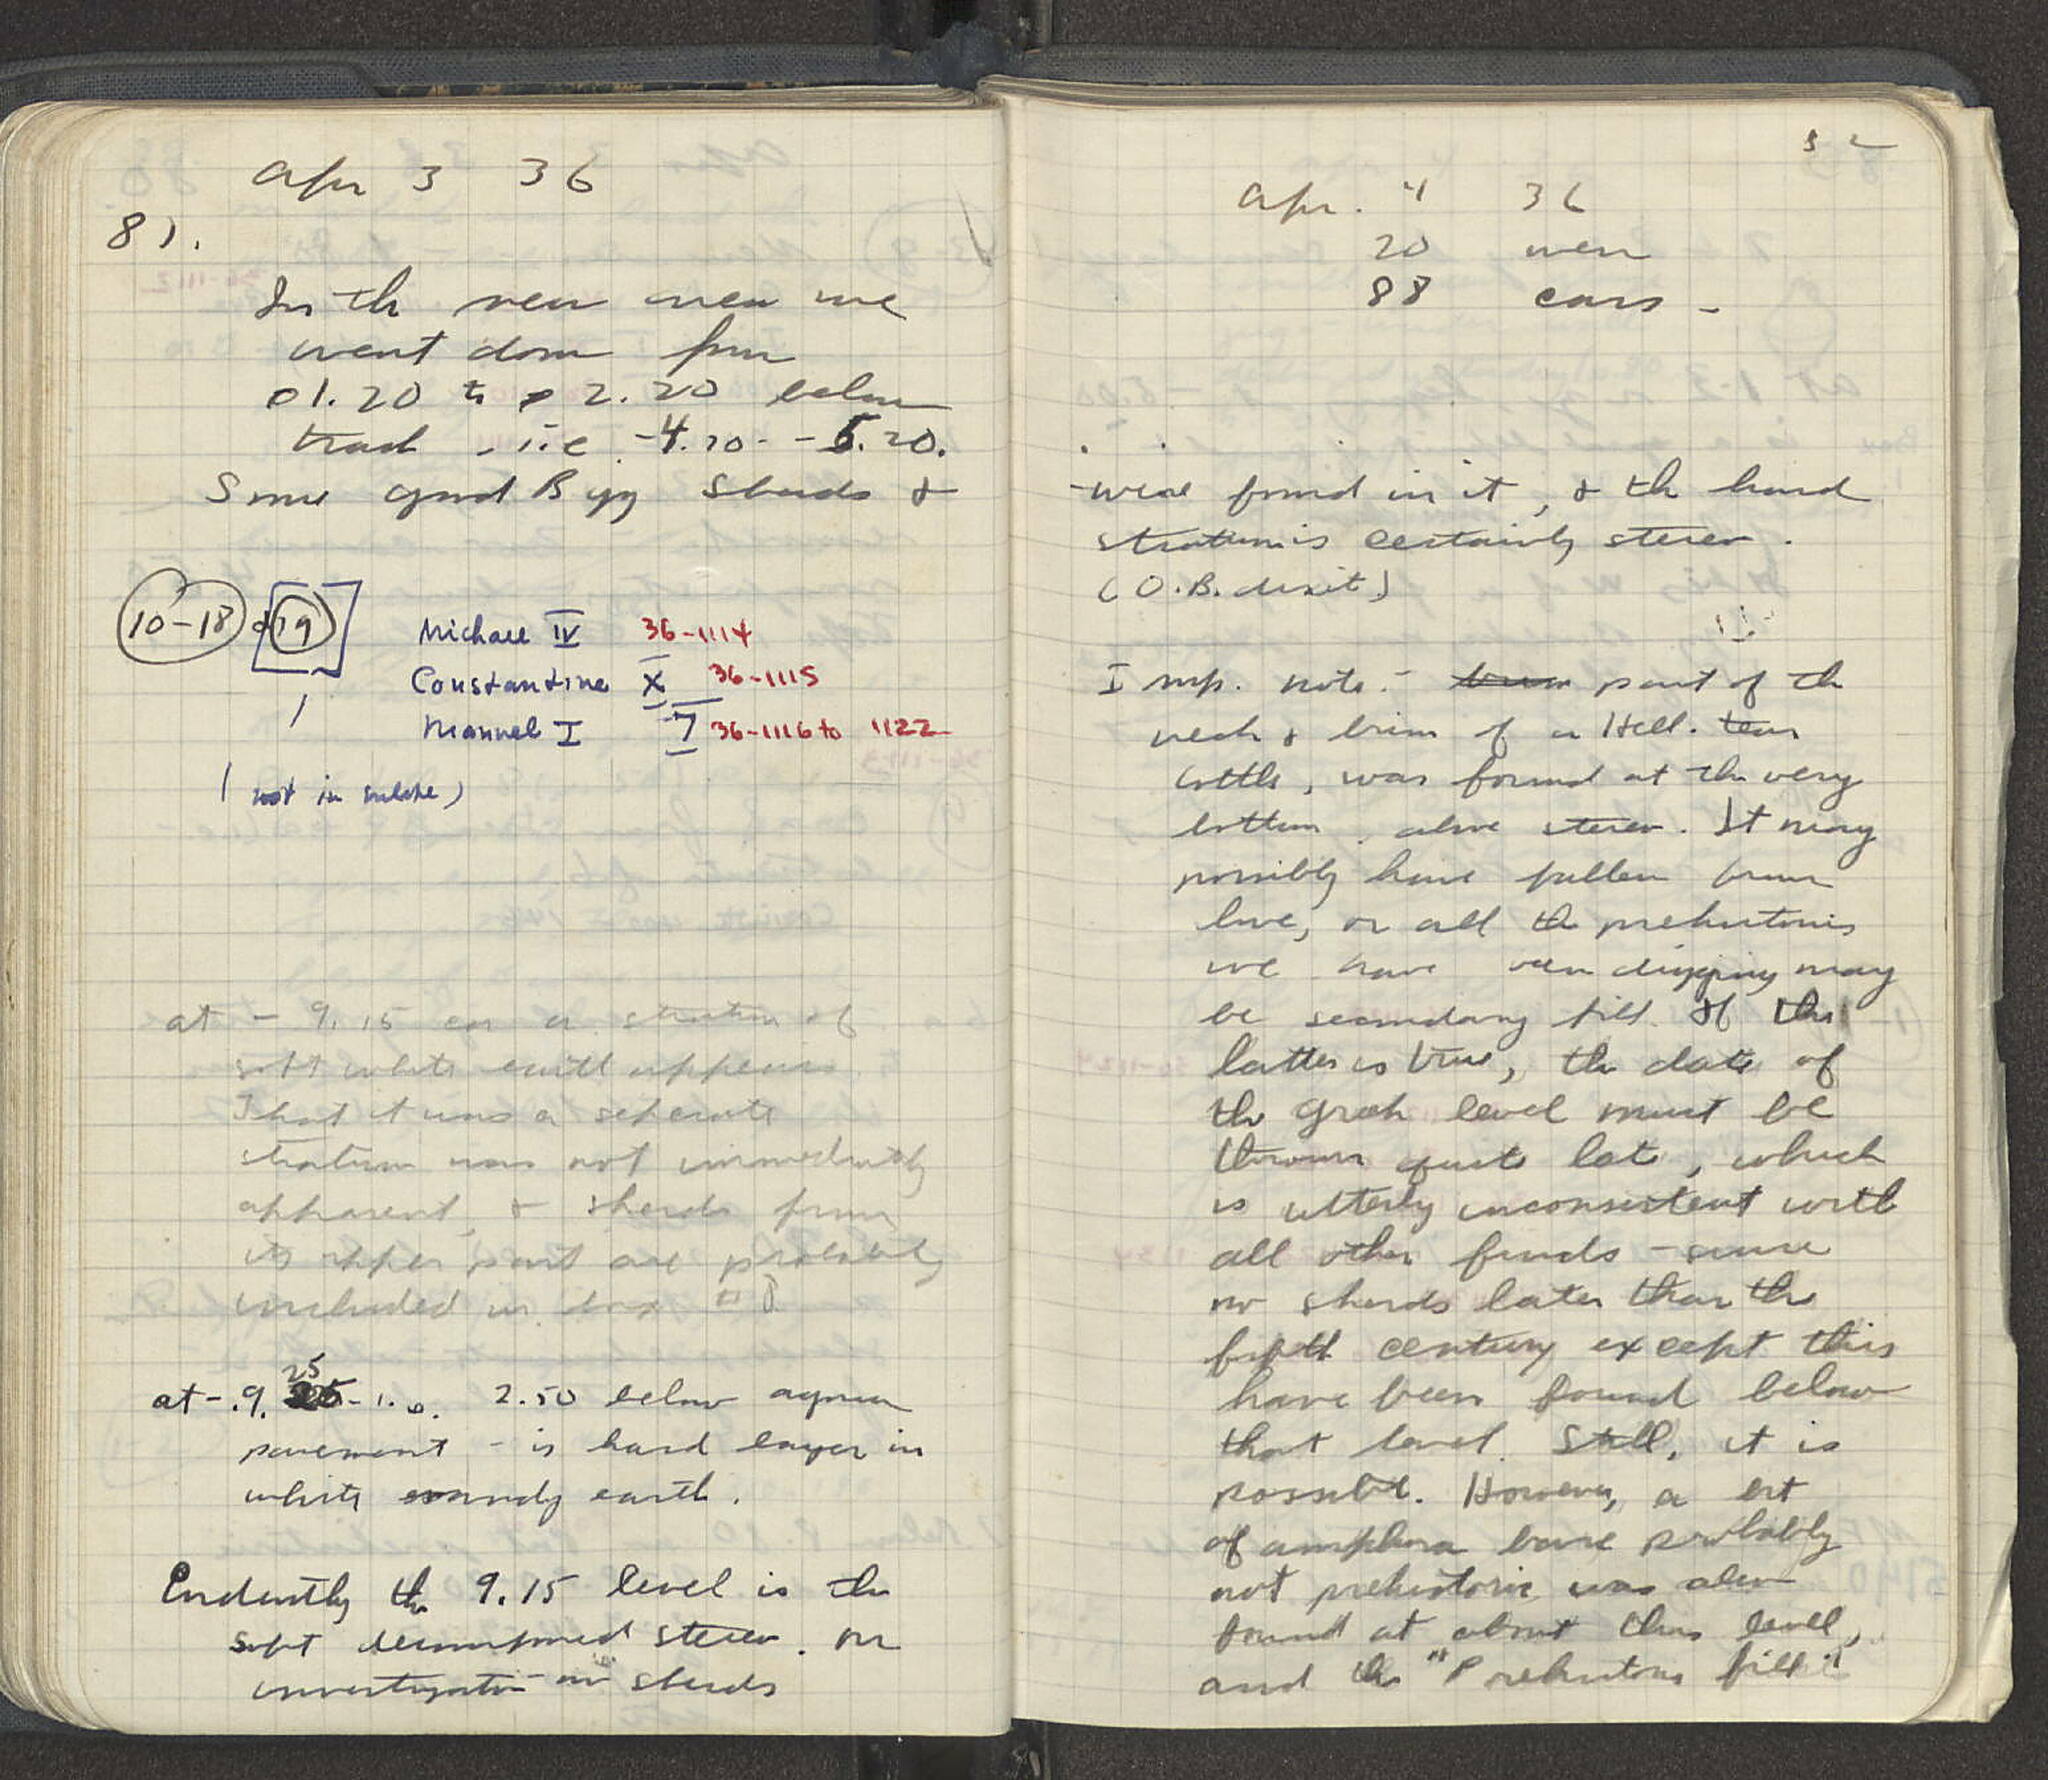 Apr 3 36
81.
In the new area we
went down from
1.20 to 2.20 below
track, i.e. -4.20 - -5.20.
Some good Byz sherds &
10-18 & 19 Michael IV 36-1114
Constantine X 36-1115
/ Manuel I 7 36-1116 to 1122
( not in )
at - 9.15 a stratum of
soft white earth appears
That it was a separate
stratum was not immediately
apparent, & sherds from
its upper part are probably
included in box # 8
25
at -.9. - i.e. 2.50 below agora
pavement - is hard layer in
white sandy earth.
Evidently the 9.15 level is the
soft decomposed stereo. On
investigation no sherds
82
Apr. 4 36
20 men
88 cars -
were found in it, & the hard
stratum is certainly stereo.
(O.B. dixit)
Imp. note:- part of the
neck & brim of a Hell. tear
bottle, was found at the very
bottom, above stereo. It may
possibly have fallen from
above, or all the prehistoric
we have been digging may
be secondary fill. If the
latter is true, the date of
the Greek level must be
thrown quite late, which
is utterly inconsistent with
all other finds - since
no sherds later than the
fifth century except this
have been found below
that level. Still, it is
possible. However, a bit
of amphora base probably
not prehistoric was also
found at about this level,
and the "Prehistoric fill"